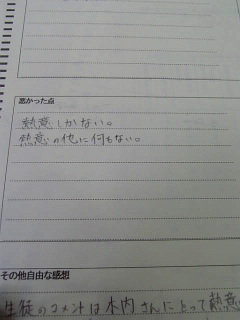 悪かった点
熱意しかない。
熱意の他に何もない。
その他自由な感想
生徒のコメントは木内さんにとって熱意